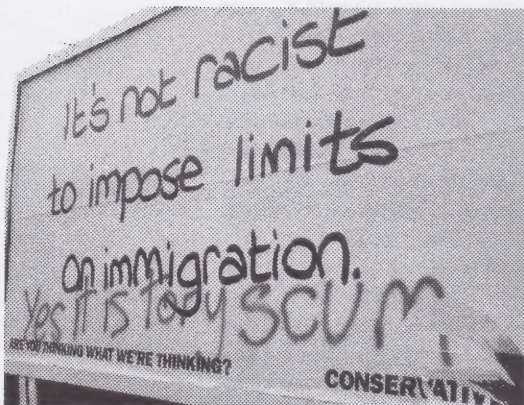 It's not racist
to impose limits
on immigration.
Yes it is Tory SCUM
ARE YOU THINKING WHAT WE'RE THINKING?